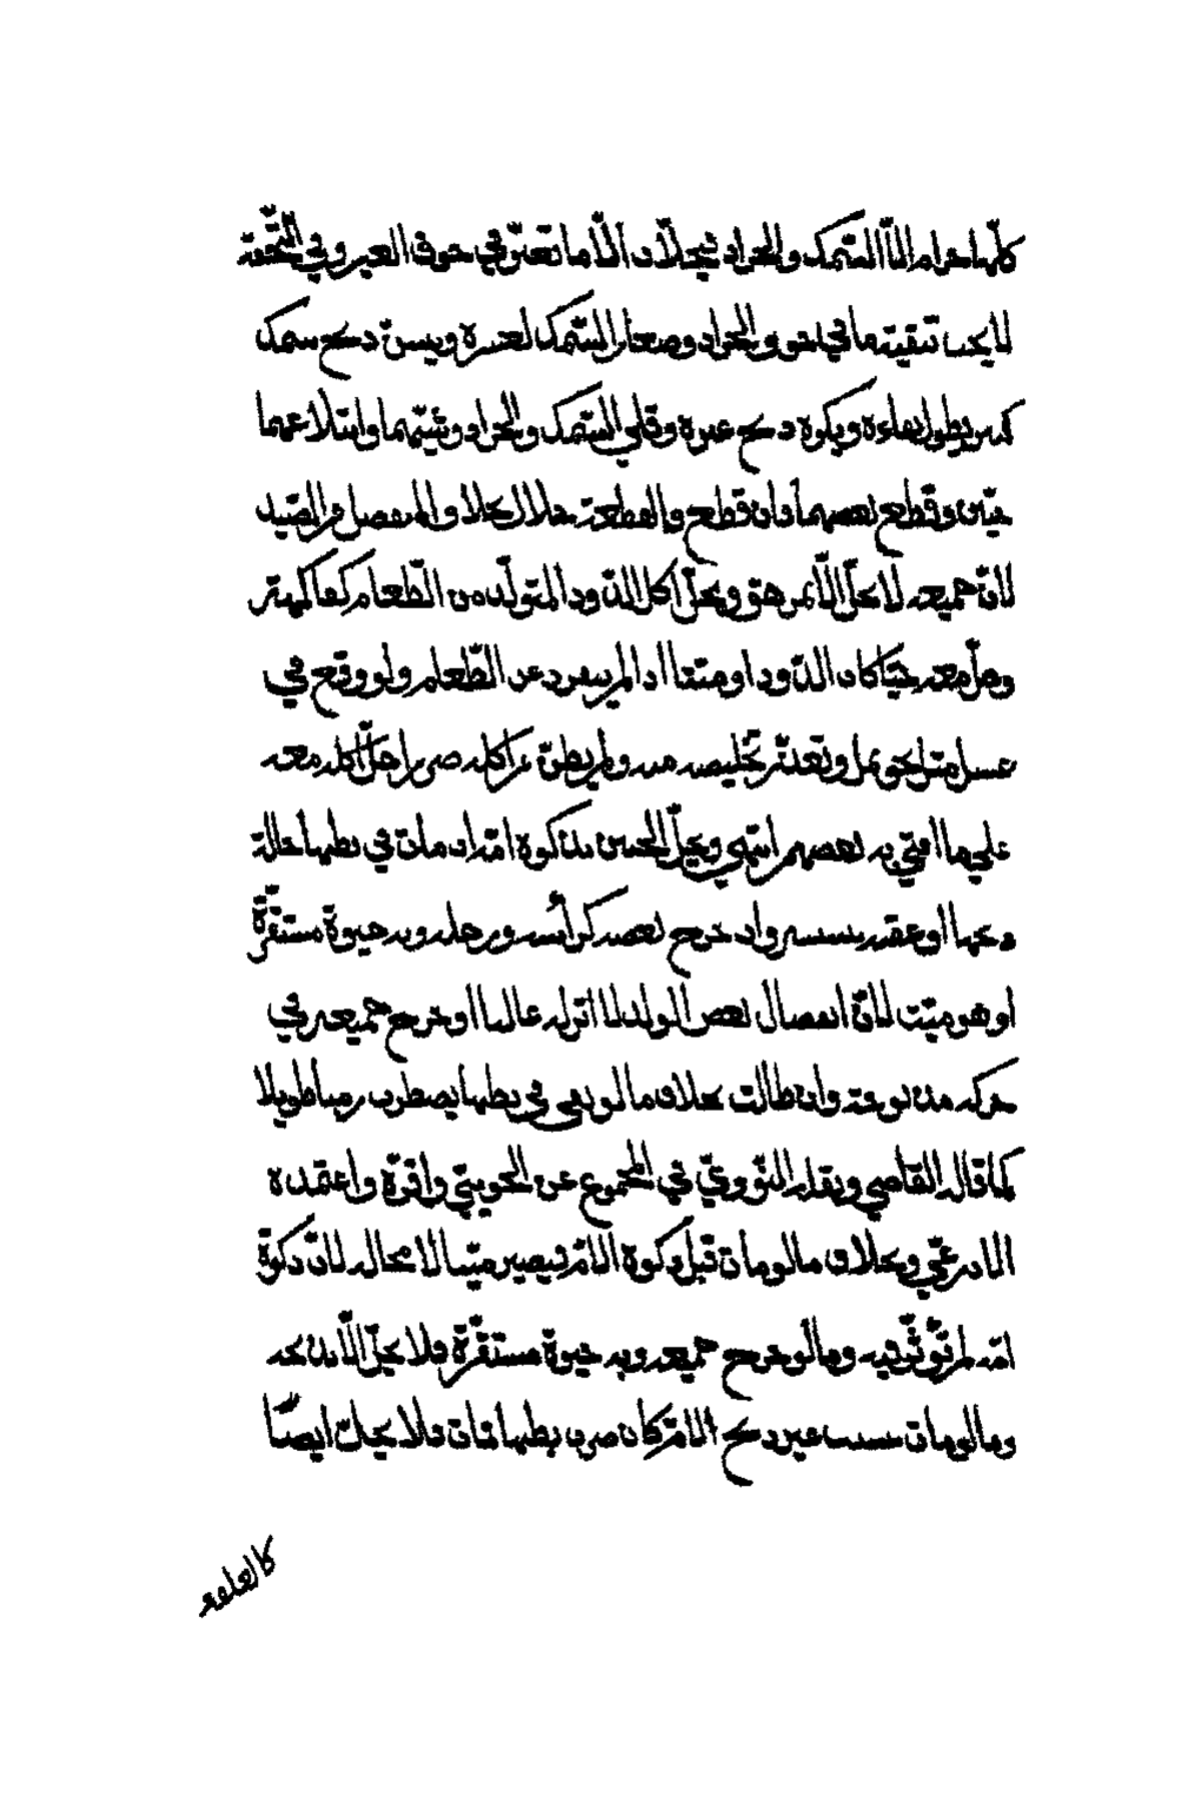 كلّها حرام إلّا السّمك والجراد فيحلّان إلّا ما تغيّر في جوف الغير وفي التّحفة
لا يجب تنقية ما في جوف الجراد وصغار السّمك لعسره ويسنّ ذبح سمك
كبير يطول بقاءه ويكره ذبح غيره وقلي السّمك والجراد وشيّهما وابتلاعهما
حيّين وقطع بعضهما فان قطع فالقطعة حلال بخلاف المنفصل من الصّيد
لانّ جميعه لا يحلّ إلّا بمزهق ويحلّ اكل الدّود المتولّد من الطّعام كفاكهة
وخلّ معه حيّا كان الدّود او ميتا اذا لم ينفرد عن الطّعام ولو وقع في
عسل مثلا نحو نمل وتعذّر تخليصه منه ولم يظنّ من اكله ضررا حلّ اكله معه
على ما افتى به بعضهم انتهى ويحلّ الجنين بذكوة امّه ان مات في بطنها حالة
ذبحها او عقبه بيسير وان خرج بعضه كرأسه ورجله وبه حيوة مستقرّة
او هو ميّت لانّ انفصال بعض الولد لا اثر له غالبا او خرج جميعه وفي
حركة مذبوحة وان طالت بخلاف ما لو بقى في بطنها يضطرب زمنا طويلا
كما قاله القاضي ونقله النّوويّ في المجموع عن الجوينيّ واقرّه واعتمده
الاذرعيّ وبخلاف ما لو مات قبل ذكوة الامّ فيصير ميّتا لا محالة لانّ ذكوة
امّه لم تؤثّر فيه وما لو خرج جميعه وبه حيوة مستقرّة فلا يحلّ إلّا بذبحه
وما لو مات بسبب غير ذبح الامّ كأن ضرب بطنها فمات فلا يحلّ ايضًا
كالعلقة